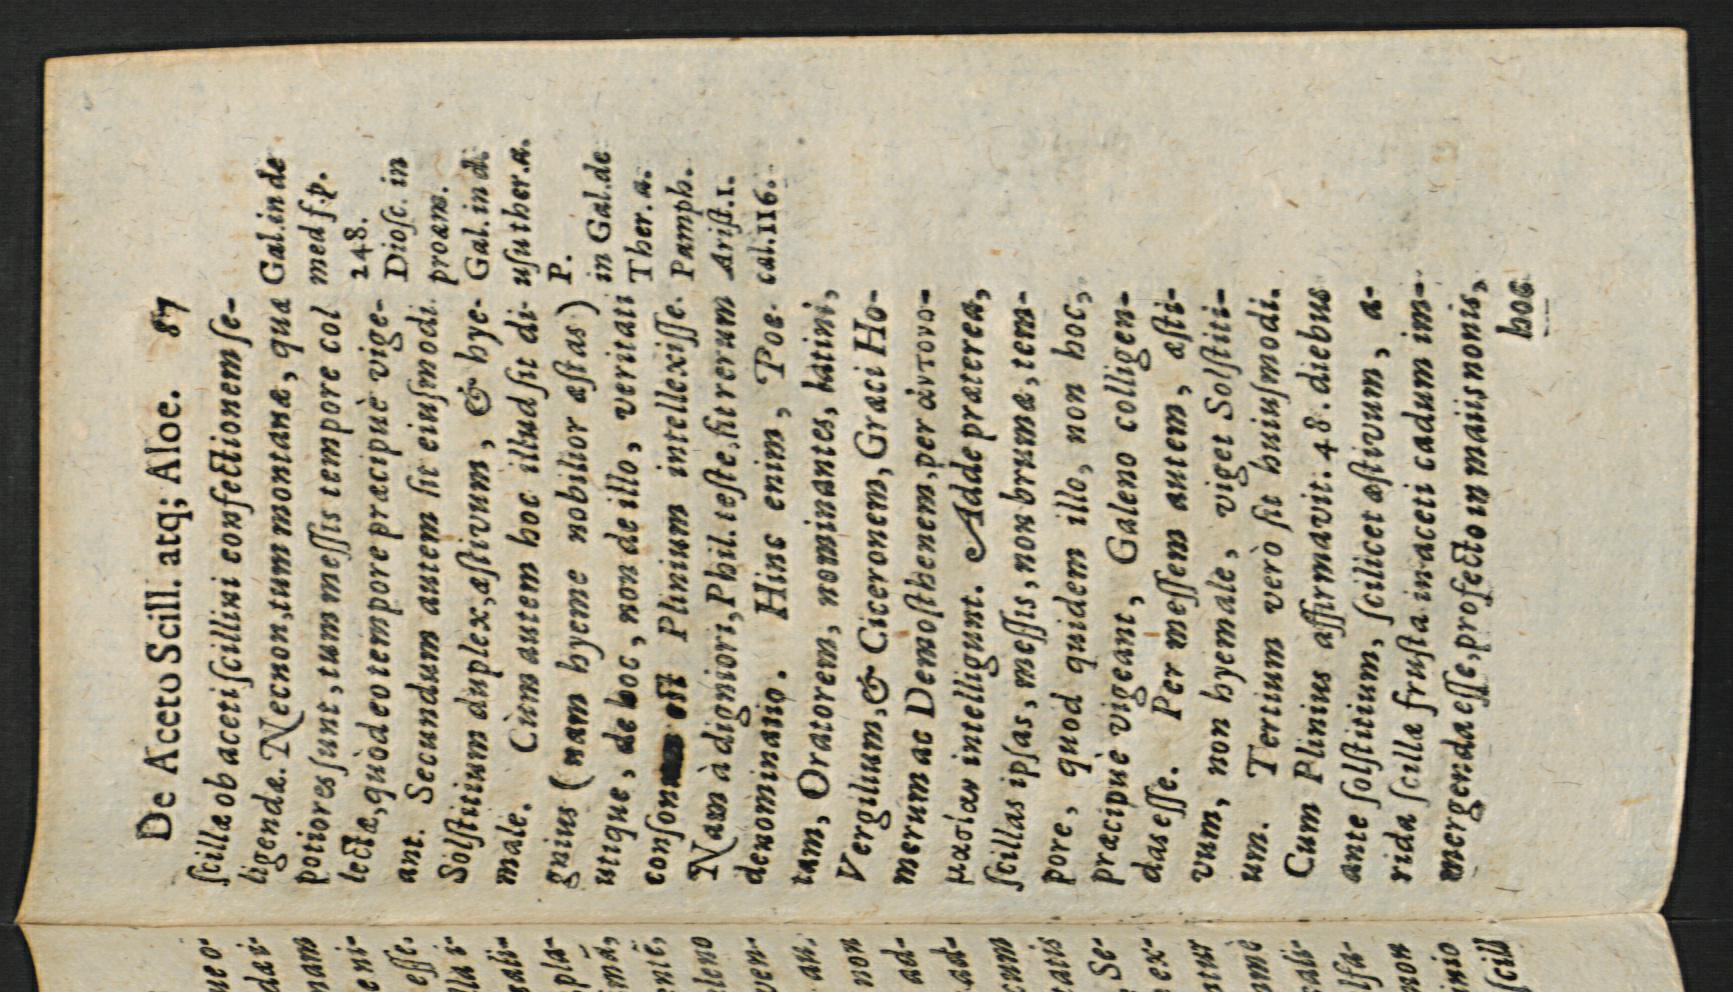 De Aceto Scill. atq; Aloe. 87
ſcillæ ob aceti ſcillini confectionem ſe-
ligendæ. Necnon, tum montanæ, quæ
potiores ſunt, tum meſſis tempore col
lectæ, quòd eo tempore præcipuè vige-
ant. Secundum autem ſit eiuſmodi.
Solſtitium duplex, æſtivum, & hye-
male. Cùm autem hoc illud ſit di-
gnius (nam hyeme nobilior æſtas)
utique, de hoc, non de illo, veritati
conſonum est Plinium intellexiſſe.
Nam à digniori, Phil. teſte, fit rerum
denominatio. Hinc enim, Poe-
tam, Oratorem, nominantes, latini,
Vergilium, & Ciceronem, Græci Ho-
merum ac Demoſthenem, per ἀντονο-
μασίαν intelligunt. Adde præterea,
ſcillas ipſas, meſſis, non brumæ, tem-
pore, quod quidem illo, non hoc,
præcipuè vigeant, Galeno colligen-
das eſſe. Per meſſem autem, æſti-
vum, non hyemale, viget Solſtiti-
um. Tertium verò ſit huiuſmodi.
Cum Plinius affirmavit. 48. diebus
ante ſolſtitium, ſcilicet æſtivum, a-
rida ſcillæ fruſta in aceti cadum im-
mergenda eſſe, profecto in maiis nonis,
hoc
Gal. in de
med ſ.p.
248.
Dioſc. in
proæm.
Gal. in d.
uſu ther. a.
P.
in Gal. de
Ther. a.
Pamph.
Ariſt. 1.
cal. 116.
ueo-
dai-
nam
eni-
eſſe.
lla i-
pla-
leno
ven-
an.
non
ad-
ad-
cum
tatis
Se-
ex-
ntur
mè
ali-
lſa-
non
inio
ſcill